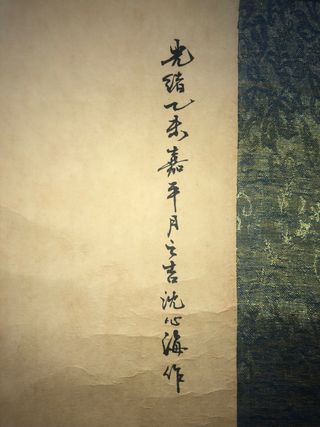 光緒乙未嘉平月之吉沈心海作